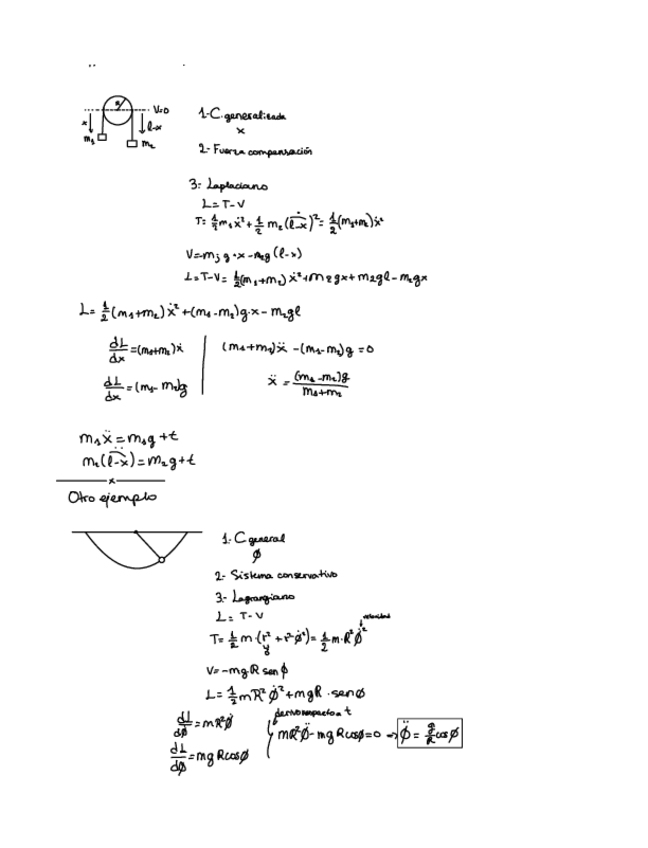 R
V=0
x
l-x
m₁
m₂
1-C. generalizada
x
2- Fuerza compensación
3- Laplaciano
L=T-V
T= ½m₁ẋ² + ½ m₂ (l-x)˙² = ½(m₁+m₂)ẋ²
V=-m₁g·x-m₂g(l-x)
L=T-V= ½(m₁+m₂) ẋ²+m₂gx+m₂gl-m₂gx
L= ½(m₁+m₂) ẋ²+(m₁-m₂)g·x-m₂gl
dL/dx =(m₁+m₂)ẋ
(m₁+m₂)ẍ -(m₁-m₂)g =0
dL/dx =(m₁- m₂)g
ẍ = (m₁-m₂)g/m₁+m₂
m₁ẍ=m₁g+t
m₂(l-x)¨=m₂g+t
x
Otro ejemplo
1- C general
ϕ
2- Sistema conservativo
3- Lagrangiano
L= T-V
velocidad
T= ½ m·(ṙ²+r²·ϕ̇²)= ½ m·R²ϕ̇²
V=-mg·R sen ϕ
L= ½mR² ϕ̇²+mgR·senϕ
dL/dϕ̇ =mR²ϕ̇
derivo respecto a t
mR²ϕ̈-mgRcosϕ=0 → ϕ̈ = g/R cosϕ
dL/dϕ =mgRcosϕ